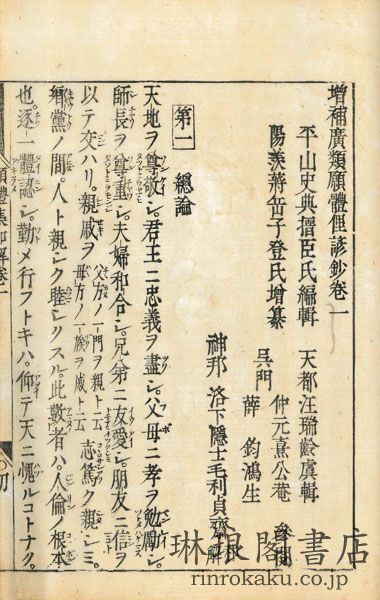 增補廣類願體俚諺鈔卷一
平山史典搢臣氏編輯
陽羨蒋缶子登氏增纂
天都汪瑞齡虞輯
仲元熹公菴
吳門 薛鈞鴻生
神那 洛下隱士毛利貞齋
第一 總論
天地ヲ尊敬シ。君王ニ忠義ヲ盡シ。父母ニ孝ヲ勉勵シ。
師長ヲ尊重シ。夫婦和合シ。兄弟ニ友愛シ。朋友ニ信ヲ
以テ交ハリ。親戚ヲ 父方ノ一門ヲ親ト云 母方ノ一族ヲ戚ト云 志篤ク親シミ。
鄉黨ノ間。人ト親シク睦シクスル。此數者ハ。人倫ノ根本
也。逐一體認シ。勤メ行フトキハ。仰テ天ニ愧ルコトナク。
琳琅閣書店
rinrokaku.co.jp